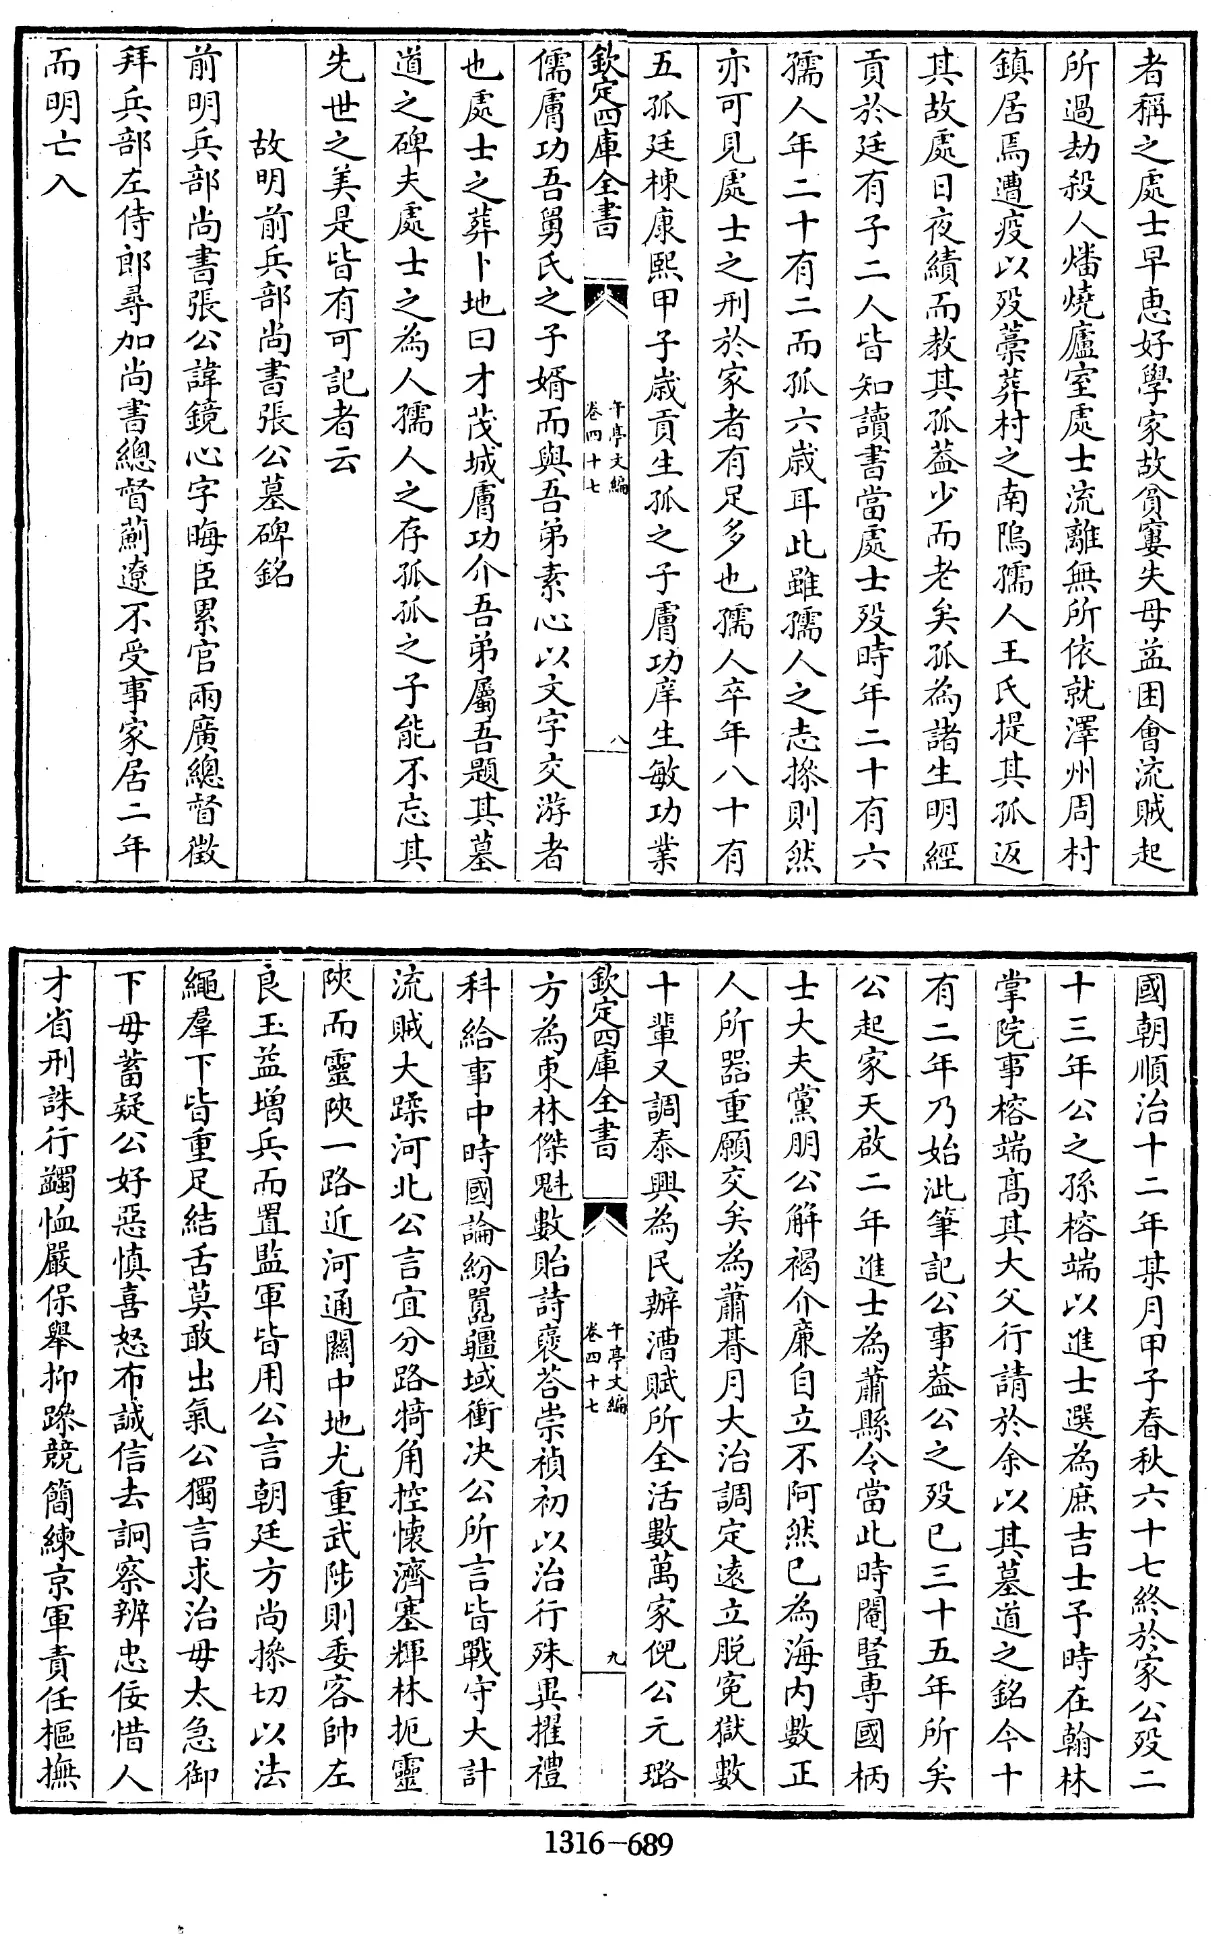 者稱之處士早恵好學家故貧窶失母益困會流賊起
所過劫殺人燔燒廬室處士流離無所依就澤州周村
鎮居焉遭疫以殁藁葬村之南隝孺人王氏提其孤返
其故處日夜績而教其孤葢少而老矣孤為諸生明經
貢於廷有子二人皆知讀書當處士殁時年二十有六
孺人年二十有二而孤六歳耳此雖孺人之志摻則然
亦可見處士之刑於家者有足多也孺人卒年八十有
五孤廷楝康熙甲子歳貢生孤之子膚功庠生敏功業
欽定四庫全書
午亭文編
卷四十七
八
儒膚功吾舅氏之子婿而與吾弟素心以文字交游者
也處士之葬卜地曰才茂城膚功介吾弟屬吾題其墓
道之碑夫處士之為人孺人之存孤孤之子能不忘其
先世之美是皆有可記者云
故明前兵部尚書張公墓碑銘
前明兵部尚書張公諱鏡心字晦臣累官兩廣總督徵
拜兵部左侍郎尋加尚書總督薊遼不受事家居二年
而明亡入
國朝順治十二年某月甲子春秋六十七終於家公殁二
十三年公之孫榕端以進士選為庶吉士予時在翰林
掌院事榕端髙其大父行請於余以其墓道之銘今十
有二年乃始泚筆記公事葢公之殁已三十五年所矣
公起家天啟二年進士為蕭縣令當此時閹豎専國柄
士大夫黨朋公解褐介㢘自立不阿然已為海内數正
人所器重願交矣為蕭朞月大治調定遠立脱寃獄數
十輩又調泰興為民辦漕賦所全活數萬家倪公元璐
欽定四庫全書
午亭文編
卷四十七
九
方為東林傑魁數貽詩襃荅崇禎初以治行殊異擢禮
科給事中時國論紛嚚疆域衝决公所言皆戰守大計
流賊大蹂河北公言宜分路犄角控懷濟塞輝林扼靈
陜而靈陜一路近河通關中地尤重武陟則委客帥左
良玉益增兵而置監軍皆用公言朝廷方尚摻切以法
繩羣下皆重足結舌莫敢出氣公獨言求治毋太急御
下毋蓄疑公好惡慎喜怒布誠信去詗察辨忠佞惜人
才省刑誅行蠲恤嚴保舉抑躁競簡練京軍責任樞撫
1316-689